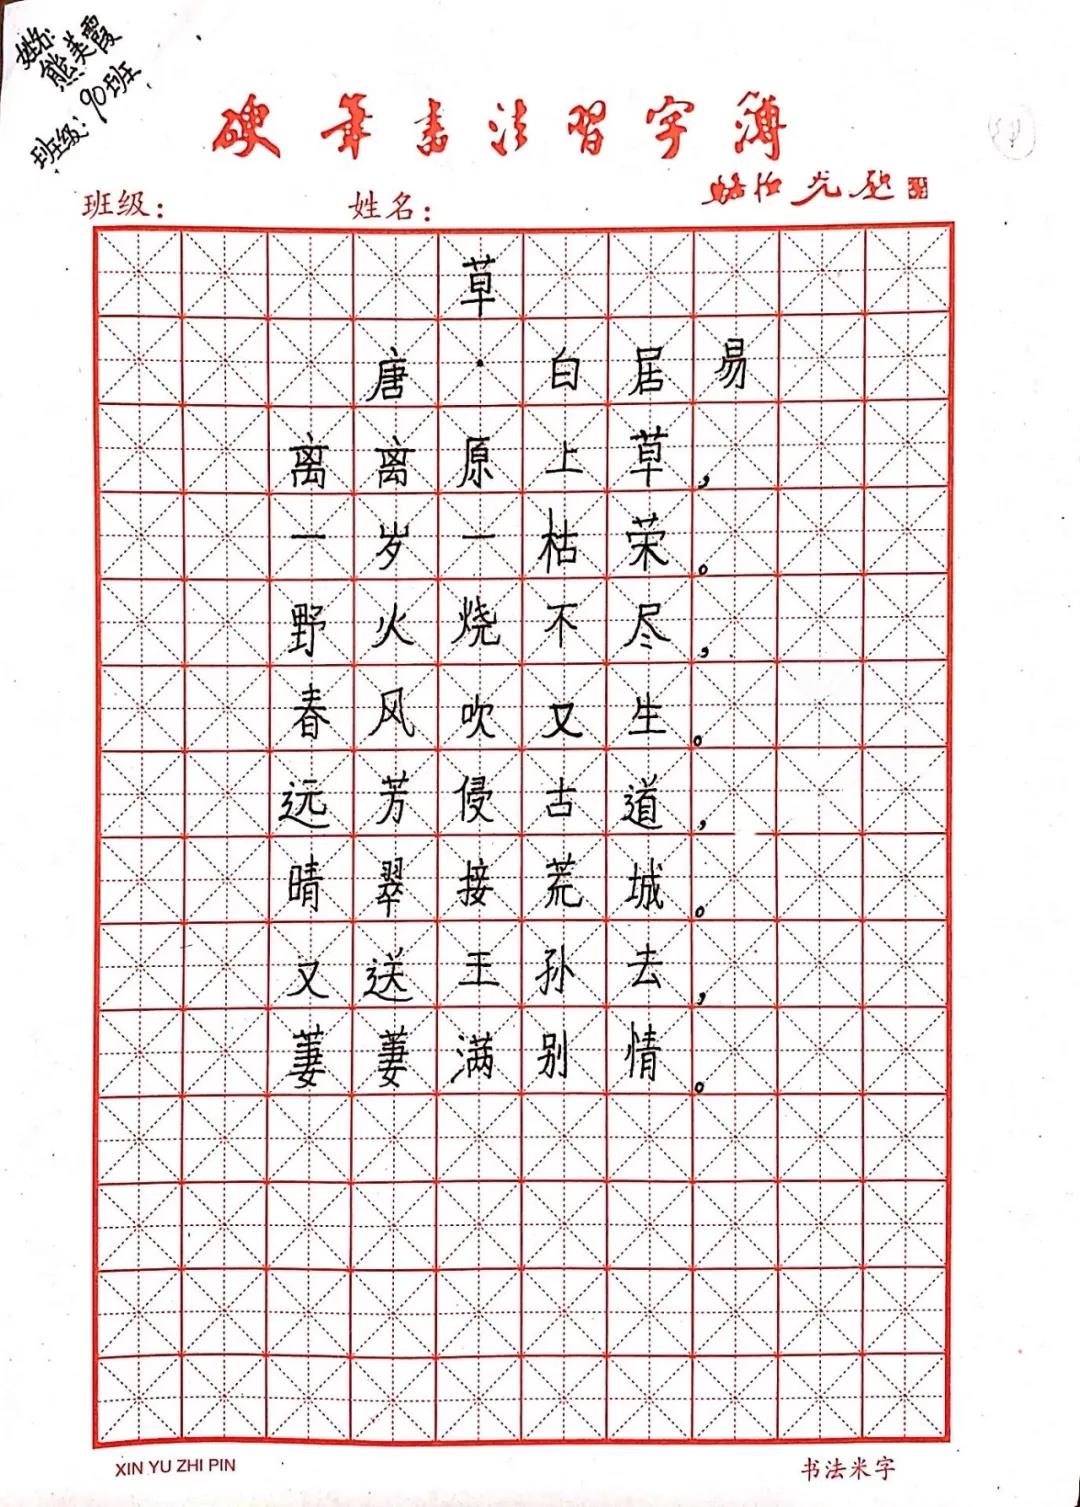 姓名:熊美霞
班级:90班
硬笔书法習字簿
班级: 姓名:
草
唐·白居易
离离原上草,
一岁一枯荣。
野火烧不尽,
春风吹又生。
远芳侵古道,
晴翠接荒城。
又送王孙去,
萋萋满别情。
XIN YU ZHI PIN 书法米字